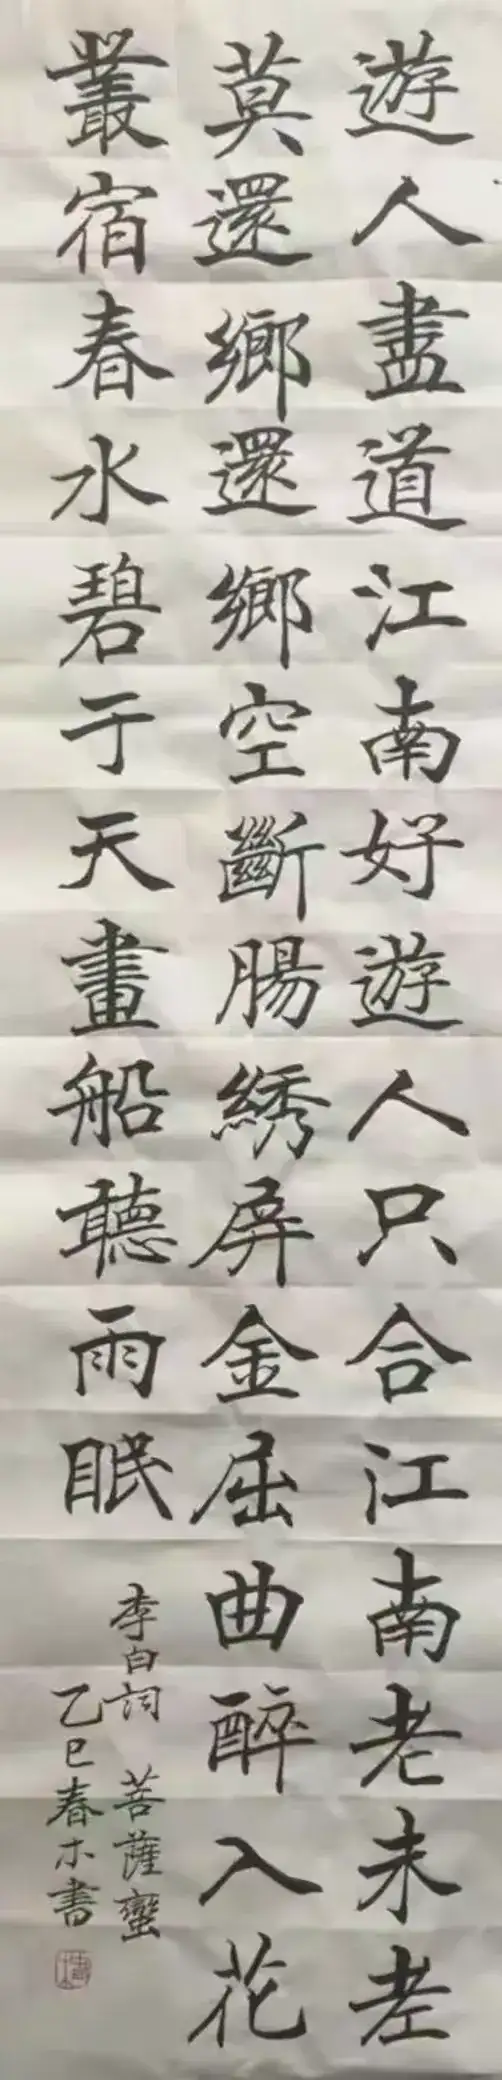 遊人盡道江南好遊人只合江南老未老
莫還鄉還鄉空斷腸綉屏金屈曲醉入花
叢宿春水碧于天畫船聽雨眠
李白詞 菩薩蠻
乙巳春木書